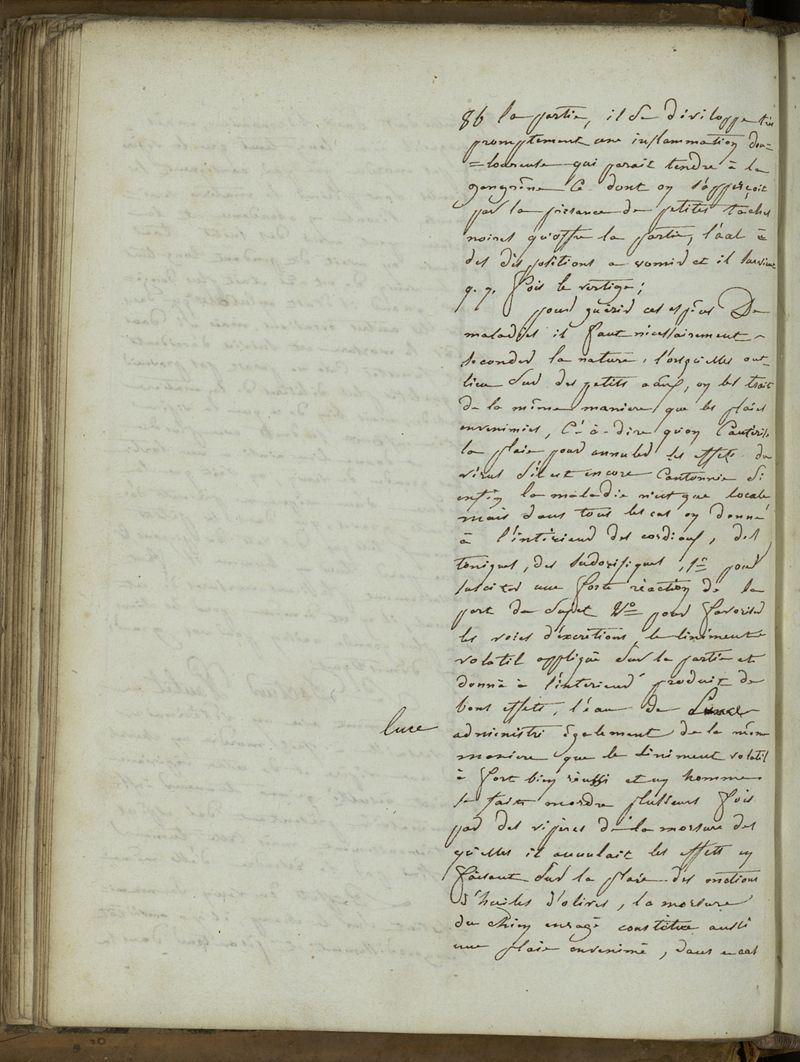 86 la partie, il se dévéloppe très
promptement une inflammation dou-
=loureuse qui parait tendre à la
gangrêne Ce dont on s'apperçoit
par la présence de petites taches
noires qu'offre la partie,
des dispositions a vomir et il survient
q. q. fois le vertige;
pour guérir ces espèces De
maladies il faut nécessairement
seconder la nature, l'orsqu'elles ont
lieu sur des petits on les trait
de la même maniere que les plaies
envenimées, C'è-à-dire qu'on Cautérise
la plaie pour annuler les effets du
virus s'il est encore Cantonnie Si
enfin la maladie n'est que locale
mais dans tous les cas on donne
à l'intérieur des cordiaux, des
toniques, des sudorifiques, 1º pour
susciter une forte réaction de la
part du Sujet 2º pour favoriser
les voies d'éxcrétions, le liniment
volatil appliqué sur la partie et
donné à l'intérieur produit de
bons effets, l'eau de
luce
administré également de la même
maniere que le liniment volatil
à fort bien réussi et un homme
se faite mordre plusieurs fois
par des vipères de la morsure des
qu'elles il annulait les effets en
faisant sur la plaie des onctions
d'huiles d'olives, la morsure
du chien enragé constitue aussi
une plaie envenimé, dans ce cas